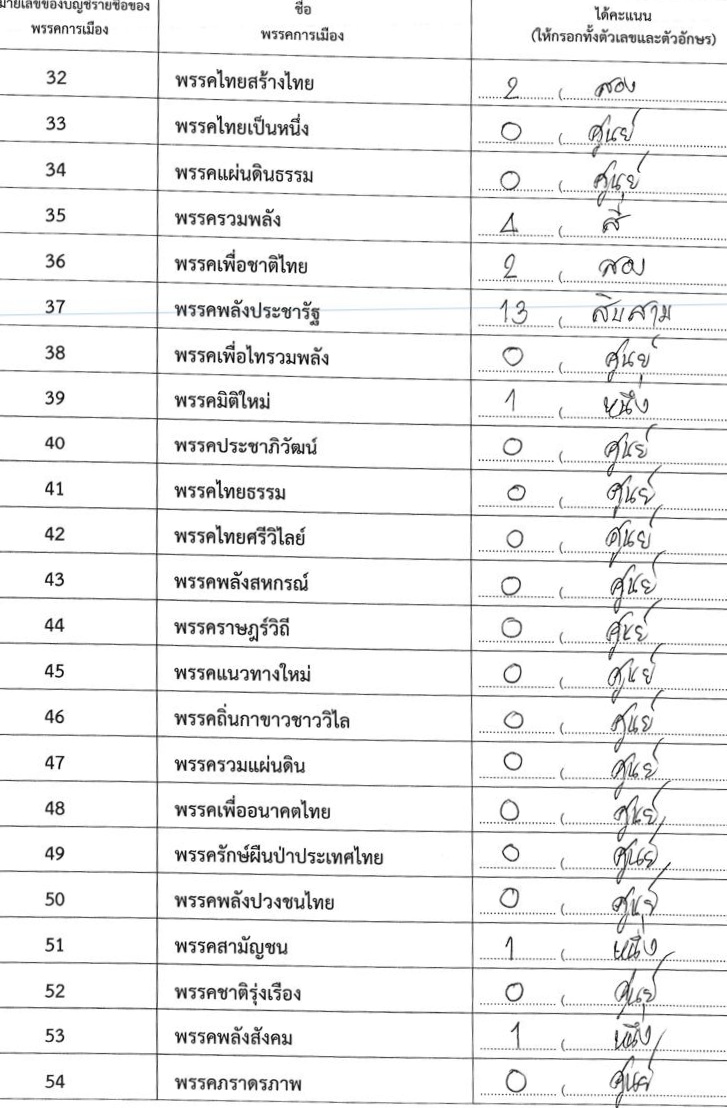 มายเลขของบัญชีรายชื่อของ
พรรคการเมือง
ชื่อ
พรรคการเมือง
ได้คะแนน
(ให้กรอกทั้งตัวเลขและตัวอักษร)
32 พรรคไทยสร้างไทย 2 ( สอง
33 พรรคไทยเป็นหนึ่ง 0 ( ศูนย์
34 พรรคแผ่นดินธรรม 0 ( ศูนย์
35 พรรครวมพลัง 4 ( สี่
36 พรรคเพื่อชาติไทย 2 ( สอง
37 พรรคพลังประชารัฐ 13 ( สิบสาม
38 พรรคเพื่อไทรวมพลัง 0 ( ศูนย์
39 พรรคมิติใหม่ 1 ( หนึ่ง
40 พรรคประชาภิวัฒน์ 0 ( ศูนย์
41 พรรคไทยธรรม 0 ( ศูนย์
42 พรรคไทยศรีวิไลย์ 0 ( ศูนย์
43 พรรคพลังสหกรณ์ 0 ( ศูนย์
44 พรรคราษฎร์วิถี 0 ( ศูนย์
45 พรรคแนวทางใหม่ 0 ( ศูนย์
46 พรรคถิ่นกาขาวชาววิไล 0 ( ศูนย์
47 พรรครวมแผ่นดิน 0 ( ศูนย์
48 พรรคเพื่ออนาคตไทย 0 ( ศูนย์
49 พรรครักษ์ผืนป่าประเทศไทย 0 ( ศูนย์
50 พรรคพลังปวงชนไทย 0 ( ศูนย์
51 พรรคสามัญชน 1 ( หนึ่ง
52 พรรคชาติรุ่งเรือง 0 ( ศูนย์
53 พรรคพลังสังคม 1 ( หนึ่ง
54 พรรคภราดรภาพ 0 ( ศูนย์